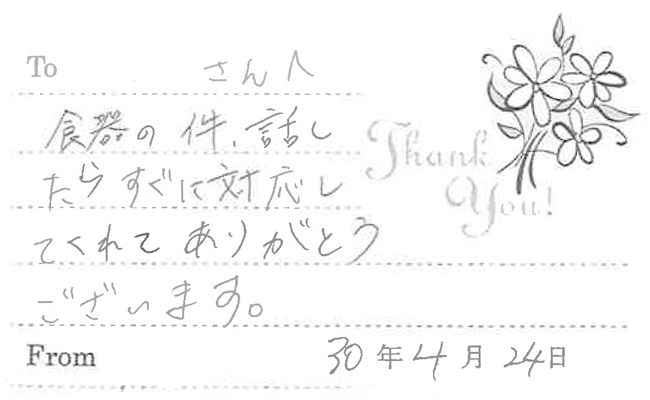 To さんへ
食器の件、話し
たらすぐに対応し
てくれてありがとう
ございます。
Thank
You!
From 30年4月24日